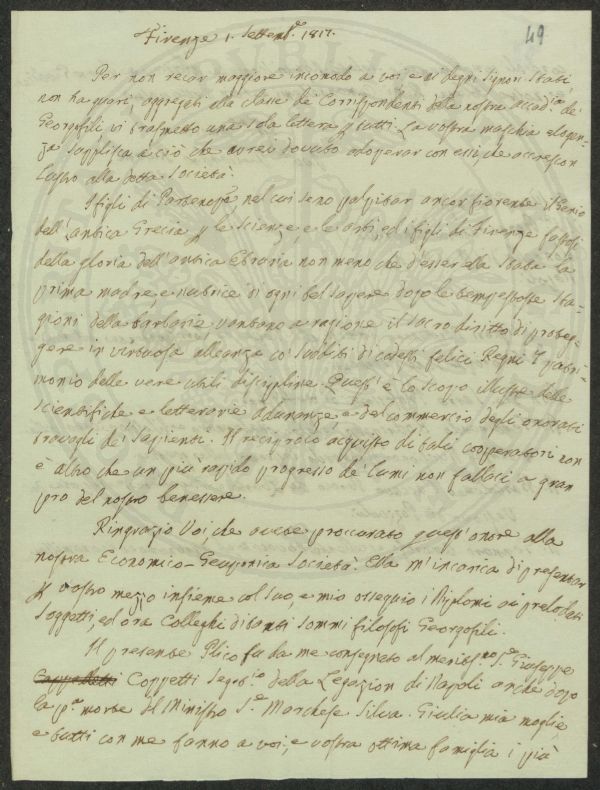 49
Firenze 1. Settemb.e 1817.
Per non recar maggiore incomodo a voi e ai degni Signori stati
non ha guari, aggregati alla classe de' Corrispondenti della nostra accad.ia de'
Georgofili vi trasmetto una sola lettera p tutti. La vostra maschia eloquen-
za supplisca a ciò che avrei dovuto adoperar con essi, che accrescon
lustro alla dotta Società.
I figli di Partenope, nel cui seno palpitar ancor fiorente il Genio
dell'antica Grecia p le scienze, e le arti, ed i figli di Firenze fastosi
della gloria dell'antica Etruria non meno che d'esser ella stata la
prima madre e nutrice di ogni bel sapere dopo le tempestose sta-
gioni della barbarie vantano a ragione il sacro diritto di proteg-
gere in virtuosa alleanza co' sudditi di codesti felici Regni il patri-
monio delle vere utili discipline. Quest'è lo scopo illustre delle
scientifiche e letterarie adunanze e del commercio degli onorati
travagli de' sapienti. Il reciproco acquisto di tali cooperatori non
è altro che un più rapido progresso de' lumi non fallaci a gran
pro del nostro benessere.
Ringrazio Voi, che aveste procurato quest'onore alla
nostra Economico-Geoponica Società. Ella m'incarica di presentar
p vostro mezzo insieme col suo, e mio ossequio i Diplomi ai prelodati
Soggetti, ed ora Colleghi di tanti sommi filosofi Georgofili.
Il presente Plico fu da me consegnato al merit.mo S.r Giuseppe
Coppetti Segret.io della Legazion di Napoli anche dopo
la morte del Ministro S.r Marchese Silva. Giulia mia moglie,
e tutti con me fanno a voi, e vostra ottima famiglia i più